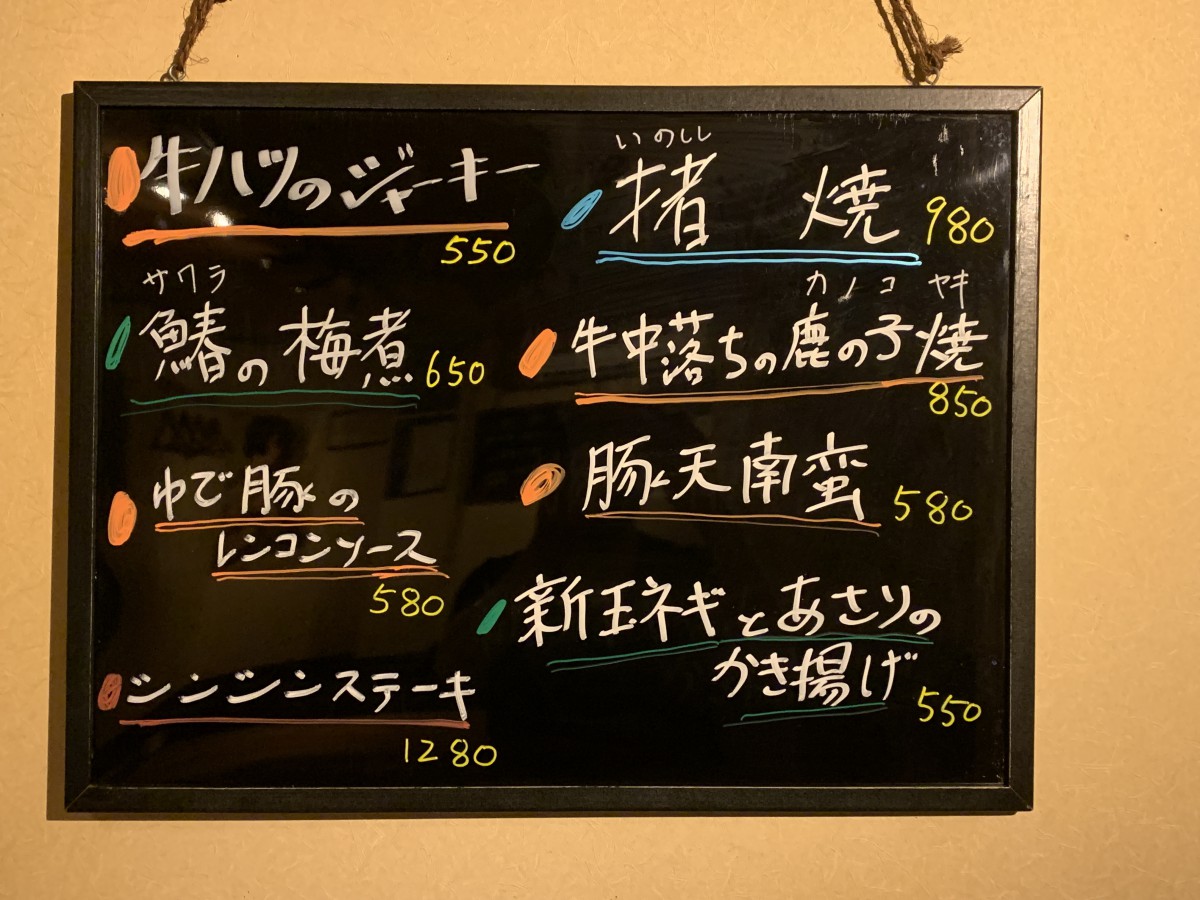 牛ハツのジャーキー
550
サワラ
鰆の梅煮 650
ゆで豚の
レンコンソース
580
シンシンステーキ
1280
いのしし
猪 焼 980
カノコ ヤキ
牛中落ちの鹿の子焼
850
豚天南蛮 580
新玉ネギとあさりの
かき揚げ 550